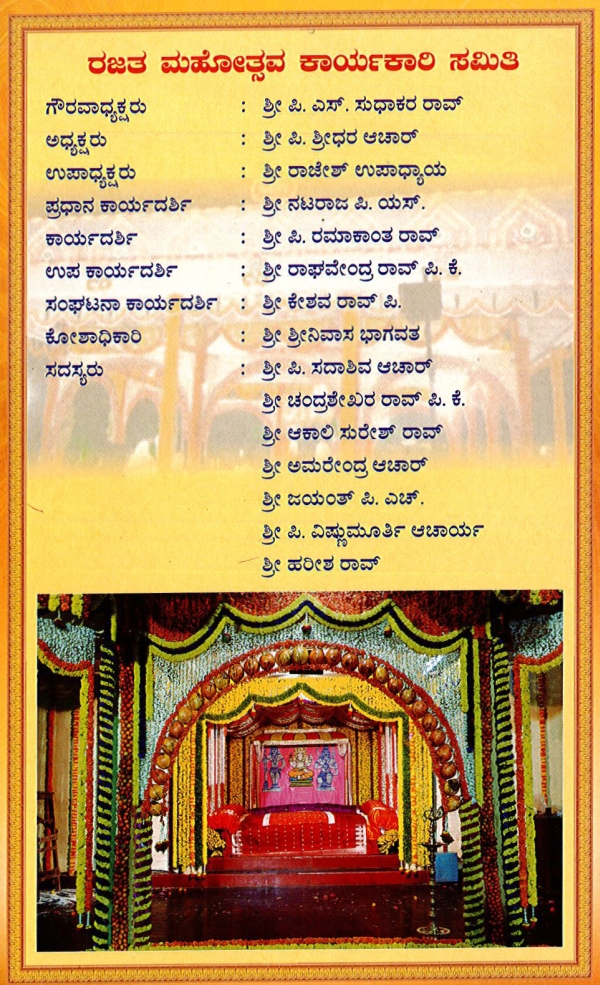 ರಜತ ಮಹೋತ್ಸವ ಕಾರ್ಯಕಾರಿ ಸಮಿತಿ
ಗೌರವಾಧ್ಯಕ್ಷರು : ಶ್ರೀ ಪಿ. ಎಸ್. ಸುಧಾಕರ ರಾವ್
ಅಧ್ಯಕ್ಷರು : ಶ್ರೀ ಪಿ. ಶ್ರೀಧರ ಆಚಾರ್
ಉಪಾಧ್ಯಕ್ಷರು : ಶ್ರೀ ರಾಜೇಶ್ ಉಪಾಧ್ಯಾಯ
ಪ್ರಧಾನ ಕಾರ್ಯದರ್ಶಿ : ಶ್ರೀ ನಟರಾಜ ಪಿ. ಯಸ್.
ಕಾರ್ಯದರ್ಶಿ : ಶ್ರೀ ಪಿ. ರಮಾಕಾಂತ ರಾವ್
ಉಪ ಕಾರ್ಯದರ್ಶಿ : ಶ್ರೀ ರಾಘವೇಂದ್ರ ರಾವ್ ಪಿ. ಕೆ.
ಸಂಘಟನಾ ಕಾರ್ಯದರ್ಶಿ : ಶ್ರೀ ಕೇಶವ ರಾವ್ ಪಿ.
ಕೋಶಾಧಿಕಾರಿ : ಶ್ರೀ ಶ್ರೀನಿವಾಸ ಭಾಗವತ
ಸದಸ್ಯರು : ಶ್ರೀ ಪಿ. ಸದಾಶಿವ ಆಚಾರ್
ಶ್ರೀ ಚಂದ್ರಶೇಖರ ರಾವ್ ಪಿ. ಕೆ.
ಶ್ರೀ ಆಕಾಲಿ ಸುರೇಶ್ ರಾವ್
ಶ್ರೀ ಅಮರೇಂದ್ರ ಆಚಾರ್
ಶ್ರೀ ಜಯಂತ್ ಪಿ. ಎಚ್.
ಶ್ರೀ ಪಿ. ವಿಷ್ಣುಮೂರ್ತಿ ಆಚಾರ್ಯ
ಶ್ರೀ ಹರೀಶ ರಾವ್